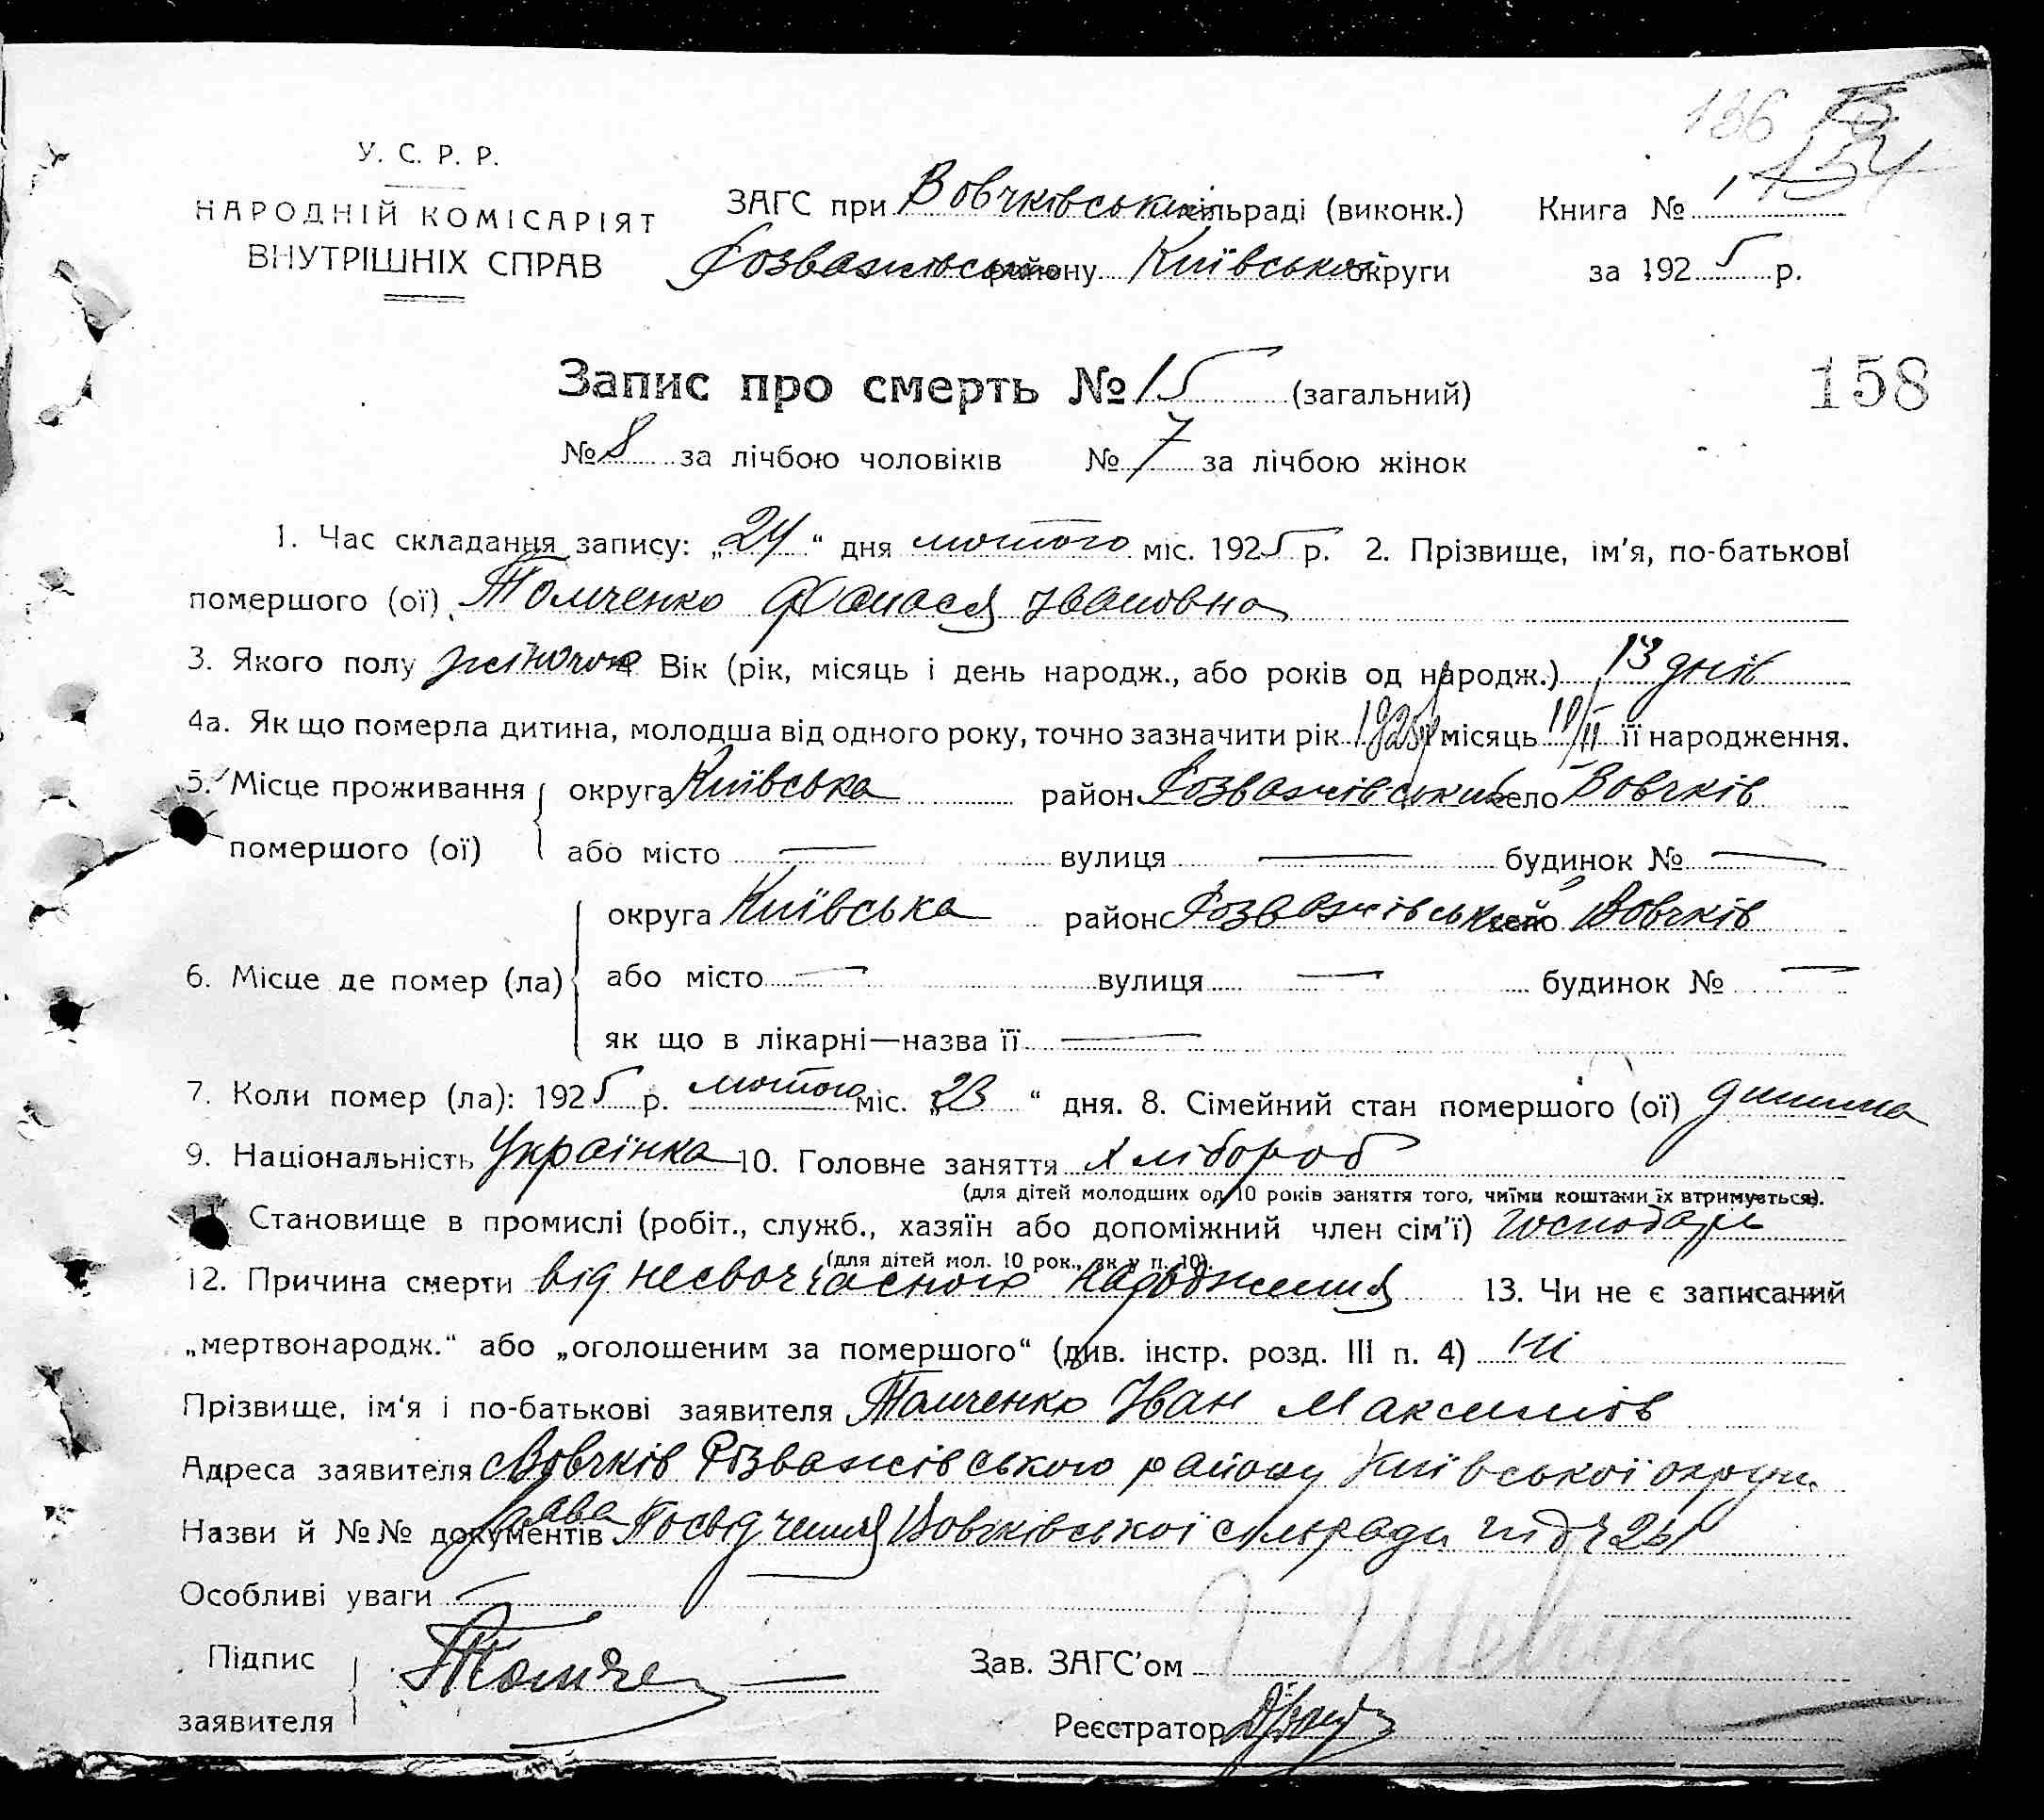 136
154
У. С. Р. Р.
НАРОДНІЙ КОМІСАРІЯТ
ВНУТРІШНІХ СПРАВ
ЗАГС при Вовчківській сільраді (виконк.) Книга № 1
Розважівського району Київської округи за 1925 р.
Запис про смерть № 15 (загальний)
158
№ 8 за лічбою чоловіків № 7 за лічбою жінок
1. Час складання запису: „24“ дня лютого міс. 1925 р. 2. Прізвище, ім'я, по-батькові
помершого (ої) Томченко Івановна
3. Якого полу жіночог 4 Вік (рік, місяць і день народж., або років од народж.) 13 днів
4а. Як що померла дитина, молодша від одного року, точно зазначити рік 1925 місяць 10/II її народження.
5. Місце проживання округа Київська район Розважівський село Вовчків
помершого (ої) або місто — вулиця — будинок № —
округа Київська район Розважівський село Вовчків
6. Місце де помер (ла) або місто — вулиця — будинок № —
як що в лікарні—назва її —
7. Коли помер (ла): 1925 р. лютого міс. „23“ дня. 8. Сімейний стан помершого (ої) дитина
9. Національність Українка 10. Головне заняття хлібороб
(для дітей молодших од 10 років заняття того, чиїми коштами їх втримується).
11. Становище в промислі (робіт., служб., хазяїн або допоміжний член сім'ї) господарь
(для дітей мол. 10 рок., як у п. 10).
12. Причина смерти від несвоєчасного народження 13. Чи не є записаний
„мертвонародж.“ або „оголошеним за помершого“ (див. інстр. розд. III п. 4) ні
Прізвище, ім'я і по-батькові заявителя Томченко Іван Максимів
Адреса заявителя Вовчків Розважівського району Київської округи
Назви й №№ документів Посвідчення Вовчківської сільради під ч 24
Особливі уваги —
Підпис
заявителя Томче
Зав. ЗАГС'ом Шевчук
Реєстратор